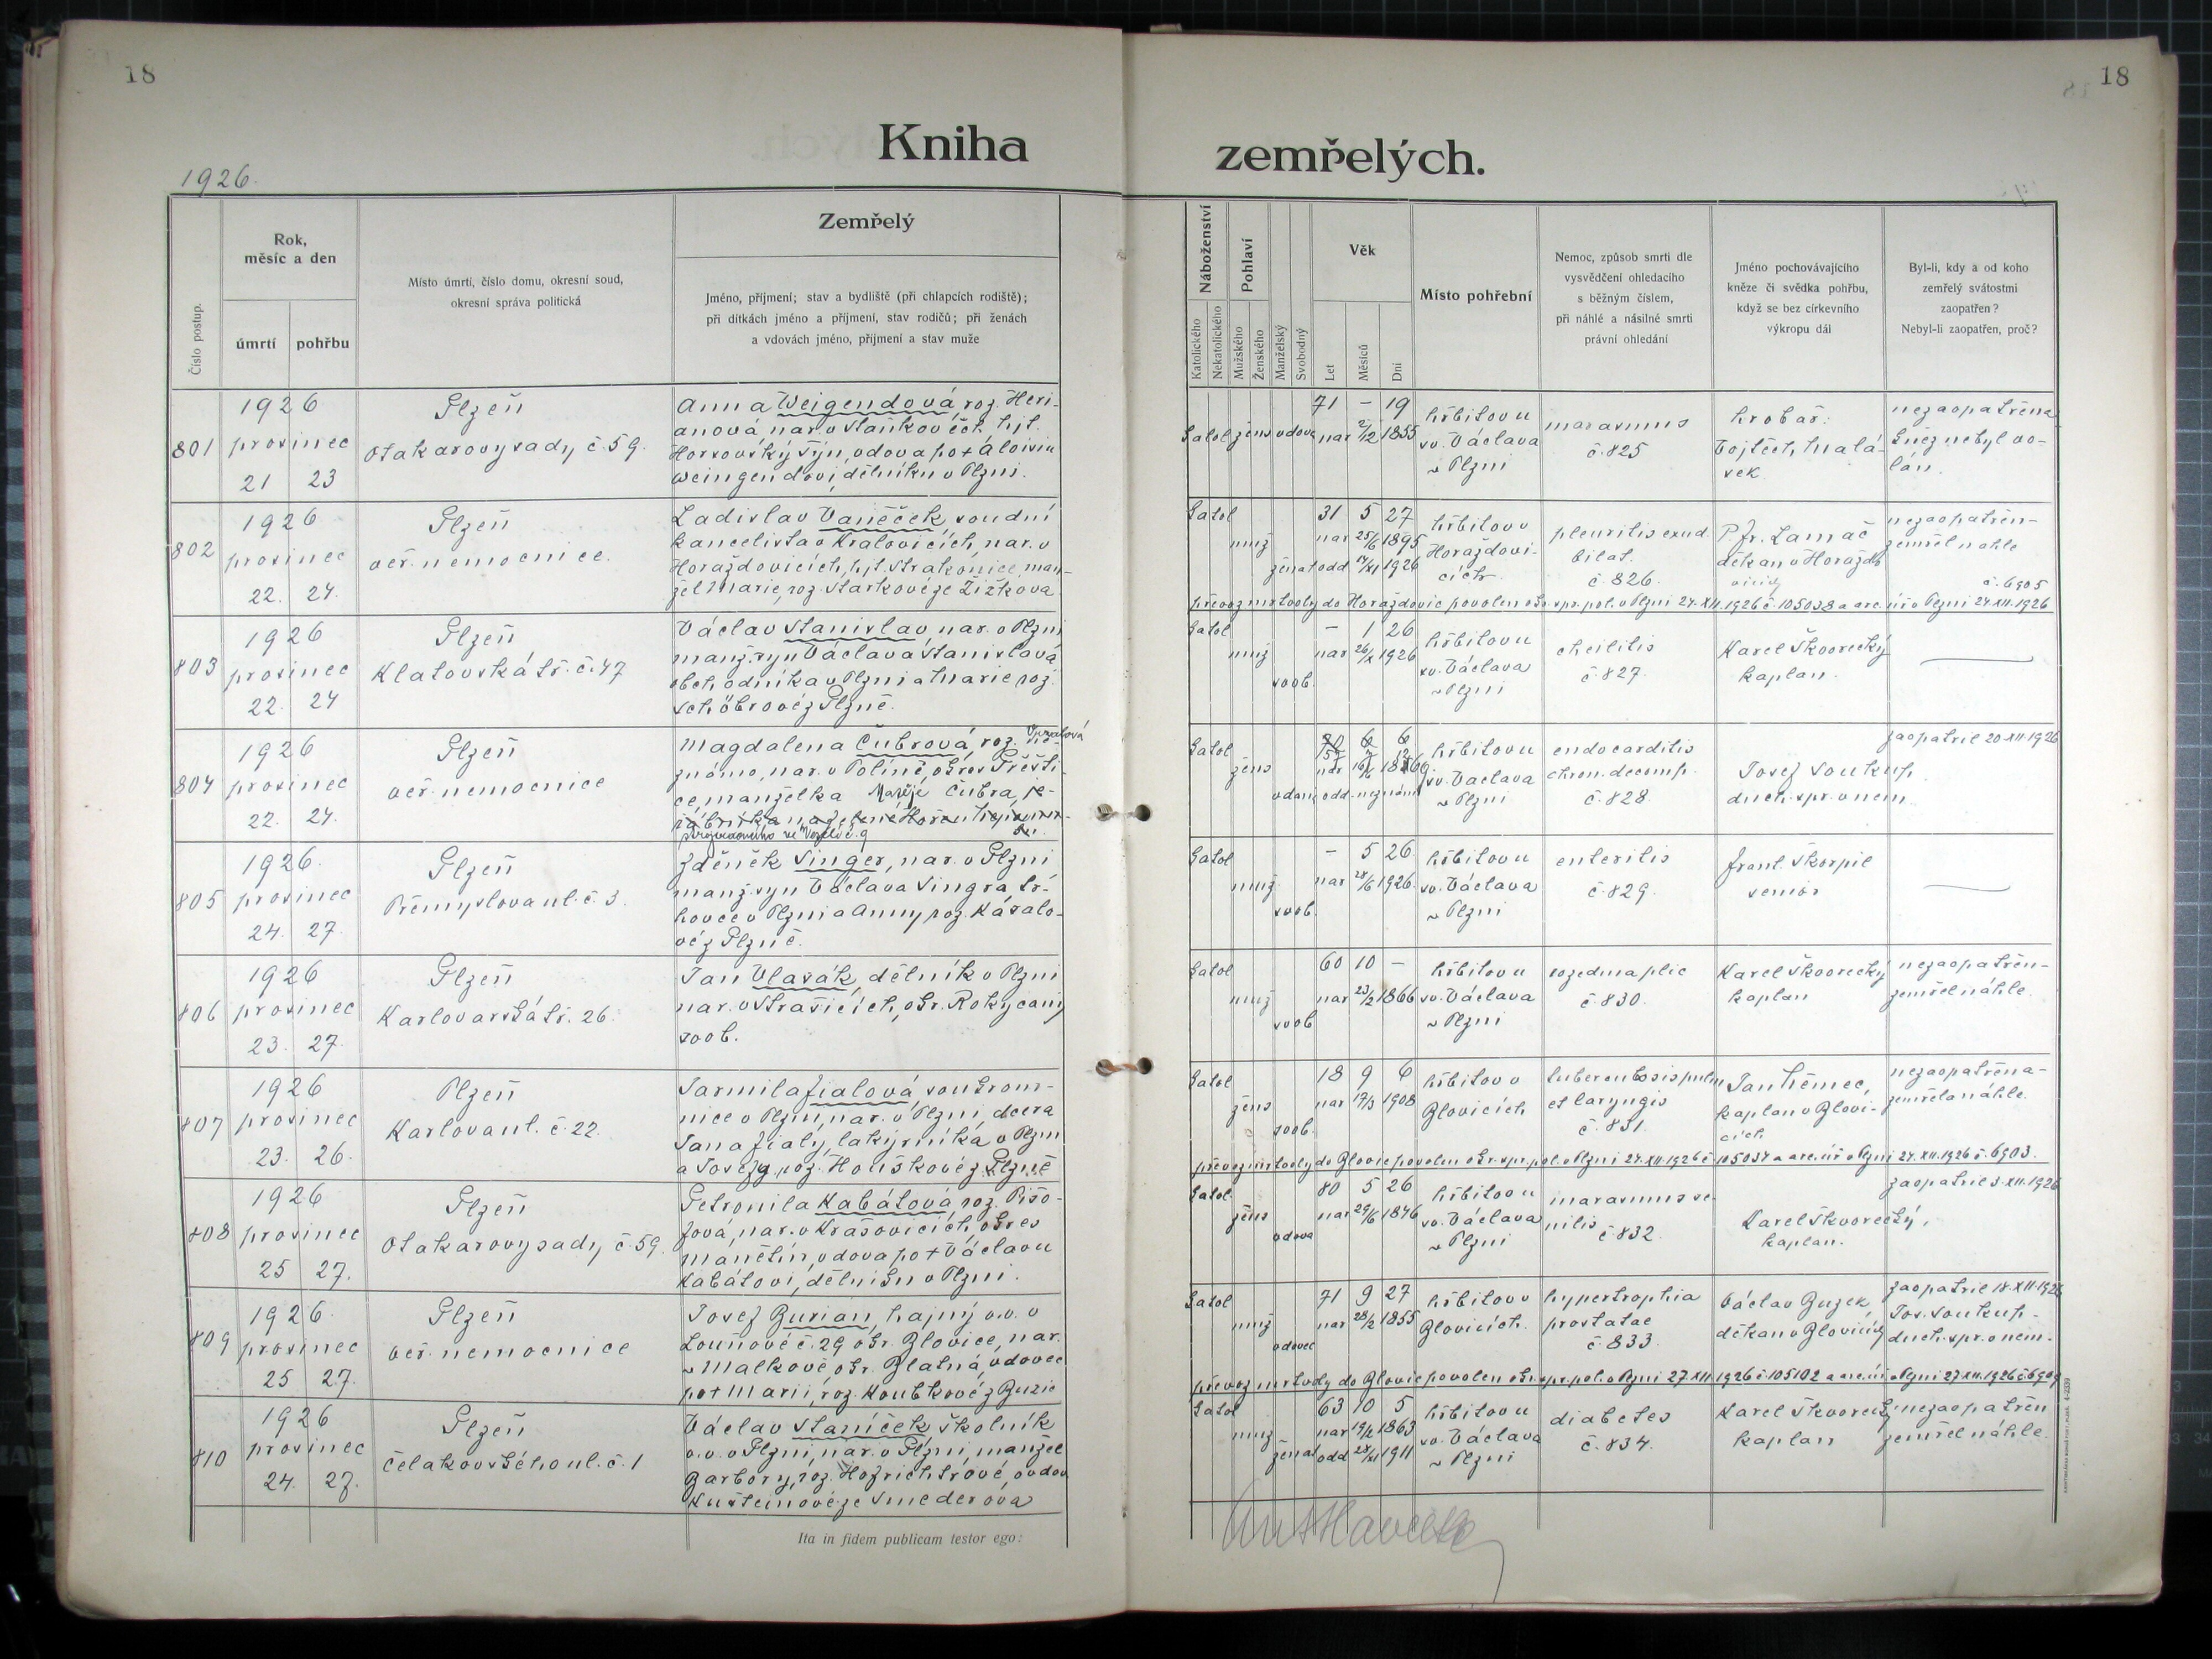 18
18
Kniha
zemřelých.
1926.
Číslo postup.
Rok,
měsíc a den
úmrtí
pohřbu
Místo úmrtí, číslo domu, okresní soud,
okresní správa politická
Zemřelý
Jméno, příjmení; stav a bydliště (při chlapcích rodiště);
při dítkách jméno a příjmení, stav rodičů; při ženách
a vdovách jméno, příjmení a stav muže
Náboženství
Katolického
Nekatolického
Pohlaví
Mužského
Ženského
Manželský
Svobodný
Věk
Let
Měsíců
Dní
Místo pohřební
Nemoc, způsob smrti dle
vysvědčení ohledacího
s běžným číslem,
při náhlé a násilné smrti
právní ohledání
Jméno pochovávajícího
kněze či svědka pohřbu,
když se bez církevního
výkropu dál
Byl-li, kdy a od koho
zemřelý svátostmi
zaopatřen?
Nebyl-li zaopatřen, proč?
801
1926
prosinec
21 23
Plzeň
Otakarovy sady č. 59.
Anna Weigendová, roz. Heri-
anová nar. v Staňkově čch. hjt.
Horšovský Týn, vdova po + Aloisiu
Weingendovi, dělníku v Plzni.
katol žens vdova
71 - 19
nar 2/12 1855
hřbitov u
sv. Václava
v Plzni
marasmus
č. 825
hrobař:
Vojtěch Malá-
sek
nezaopatřena
kněz nebyl vo-
lán.
802
1926
prosinec
22. 24.
Plzeň
veř. nemocnice.
Ladislav Vaněček, soudní
kancelista v Kralovicích, nar. v
Horažďovicích, hjt. Strakonice, man-
žel Marie, roz. Starkové ze Žižkova
katol
muž
ženat
31 5 27
nar 25/6 1895
odd 1926
hřbitov v
Horažďovi-
cích
pleuritis exud.
bilat.
č. 826.
P. Fr. Lamač
děkan v Horažďo
vicích
nezaopatřen-
zemřel náhle
č. 6905
převoz mrtvoly do Horažďovic povolen okr. spr. pol. v Plzni 24. XII. 1926 č. 105038 a arc. úř. v Plzni 24. XII. 1926
803
1926
prosinec
22. 24
Plzeň
Klatovská tř. č. 47
Václav Stanislav, nar. v Plzni
manž. syn Václava Stanislava
obchodníka v Plzni a Marie roz.
Schöbrové z Plzně.
katol
muž
svob.
- 1 26
nar 26/X 1926
hřbitov u
sv. Václava
v Plzni
cheilitis
č. 827.
Karel Škvorecký
kaplan.
804
1926
prosinec
22. 24.
Plzeň
veř. nemocnice
Magdalena Čubrová, roz.
známo, nar. v Políně, okres Přešti-
ce, manželka Matěje Čubra, je-
ve Vejprnicích č. 9
katol
žens
vdaná odd. neznámo
hřbitov u
sv. Václava
v Plzni
endocarditis
chron. decomp.
č. 828.
Josef Soukup.
duch. spr. v nem.
zaopatřil 20. XII. 1926
805
1926.
prosinec
24. 27.
Plzeň
Přemyslova ul. č. 3.
Zdeněk Singer, nar. v Plzni
manž. syn Václava Singra tr-
hovce v Plzni a Anny roz. Kásalo-
vé z Plzně.
katol
muž
svob.
- 5 26
nar 28/6 1926.
hřbitov u
sv. Václava
v Plzni
enteritis
č. 829.
Frant. Škorpil
senior
806
1926
prosinec
23. 27.
Plzeň
Karlovarská tř. 26.
Jan Vlasák, dělník v Plzni
nar. v Strašicích, okr. Rokycany
svob.
katol
muž
svob
60 10 -
nar 23/2 1866
hřbitov u
sv. Václava
v Plzni
rozedma plic
č. 830.
Karel Škvorecký
kaplan
nezaopatřen-
zemřel náhle.
807
1926
prosinec
23. 26.
Plzeň
Karlova ul. č. 22.
Jarmila Fialová, soukrom-
nice v Plzni, nar. v Plzni, dcera
Jana Fialy, lakýrníka v Plzni
a Josefy, roz. Houškové z Plzně
katol
žens
svob.
18 9 6
nar 17/3 1908
hřbitov v
Blovicích
tuberculosis pulm
et laryngis
č. 831.
Jan Němec,
kaplan v Blovi-
cích
nezaopatřena-
zemřela náhle.
převoz mrtvoly do Blovic povolen okr. spr. pol. v Plzni 24. XII. 1926 č. 105037 a arc. úř. v Plzni 24. XII. 1926 č. 6903.
808
1926
prosinec
25 27.
Plzeň
Otakarovy sady č. 59.
Petronila Kabátová, roz. Pišo-
fová, nar. v Krašovicích, okres
Manětín, vdova po + Václavu
Kabátovi, dělníku v Plzni.
katol.
žens
vdova
80 5 26
nar 29/6 1846
hřbitov u
sv. Václava
v Plzni
marasmus se-
nilis
č. 832.
Karel Škvorecký,
kaplan.
zaopatřil 3. XII. 1926
809
1926.
prosinec
25 27.
Plzeň
veř. nemocnice
Josef Burian, hajný v.v. v
Louňové č. 29 okr. Blovice, nar.
v Malkově okr. Blatná, vdovec
po + Marii, roz. Koubkové z Buzic
katol
muž
vdovec
71 9 27
nar 28/2 1855
hřbitov v
Blovicích.
hypertrophia
prostatae
č. 833.
Václav Buzek,
děkan v Blovicích
zaopatřil 18. XII. 1926
Jos. Soukup-
duch. spr. v nem.
převoz mrtvoly do Blovic povolen okr. spr. pol. v Plzni 27 XII. 1926 č. 105102 a arc. úř. v Plzni 27 XII. 1926 č. 6909
810
1926
prosinec
24. 27.
Plzeň
Čelakovského ul. č. 1
Václav Staníček školník
v.v. v Plzni, nar. v Plzni, manžel
Barbory, roz. Hofrichtrové, ovdov
Kuršteinové ze Smederova
katol
muž
ženat
63 10 5
nar 19/2 1863
odd 28/XI 1911
hřbitov u
sv. Václava
v Plzni
diabetes
č. 834.
Karel Škvorecký
kaplan
nezaopatřen
zemřel náhle.
Ita in fidem publicam testor ego: